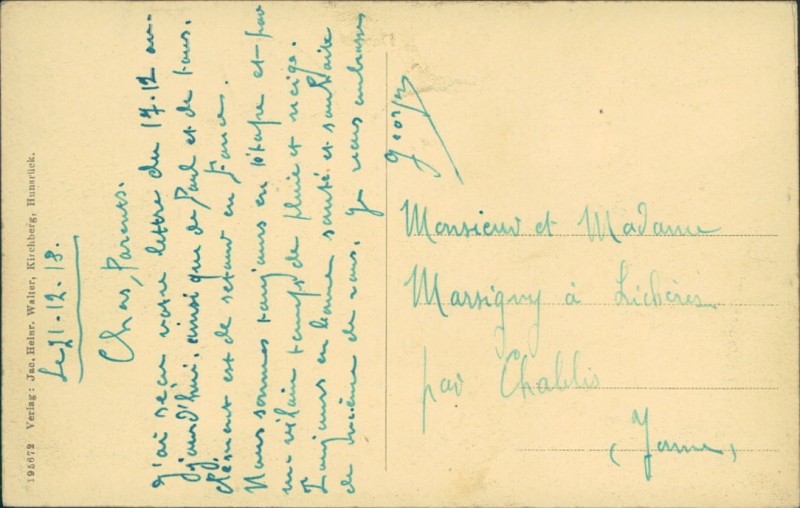 Le 21-12-18.
Chers Parents.
J'ai reçu votre lettre du 17.12 au-
jourd'hui, ainsi que de Paul et de tous.
Clément est de retour en France.
Nous sommes toujours en étape et par
un vilain temps de pluie et neige.
Toujours en bonne santé et souhaite
de même de vous. Je vous embrasse
Monsieur et Madame
Marsigny à Lichères
par Chablis
(Yonne)
195672 Verlag: Jac. Heinr. Walter, Kirchberg, Hunsrück.